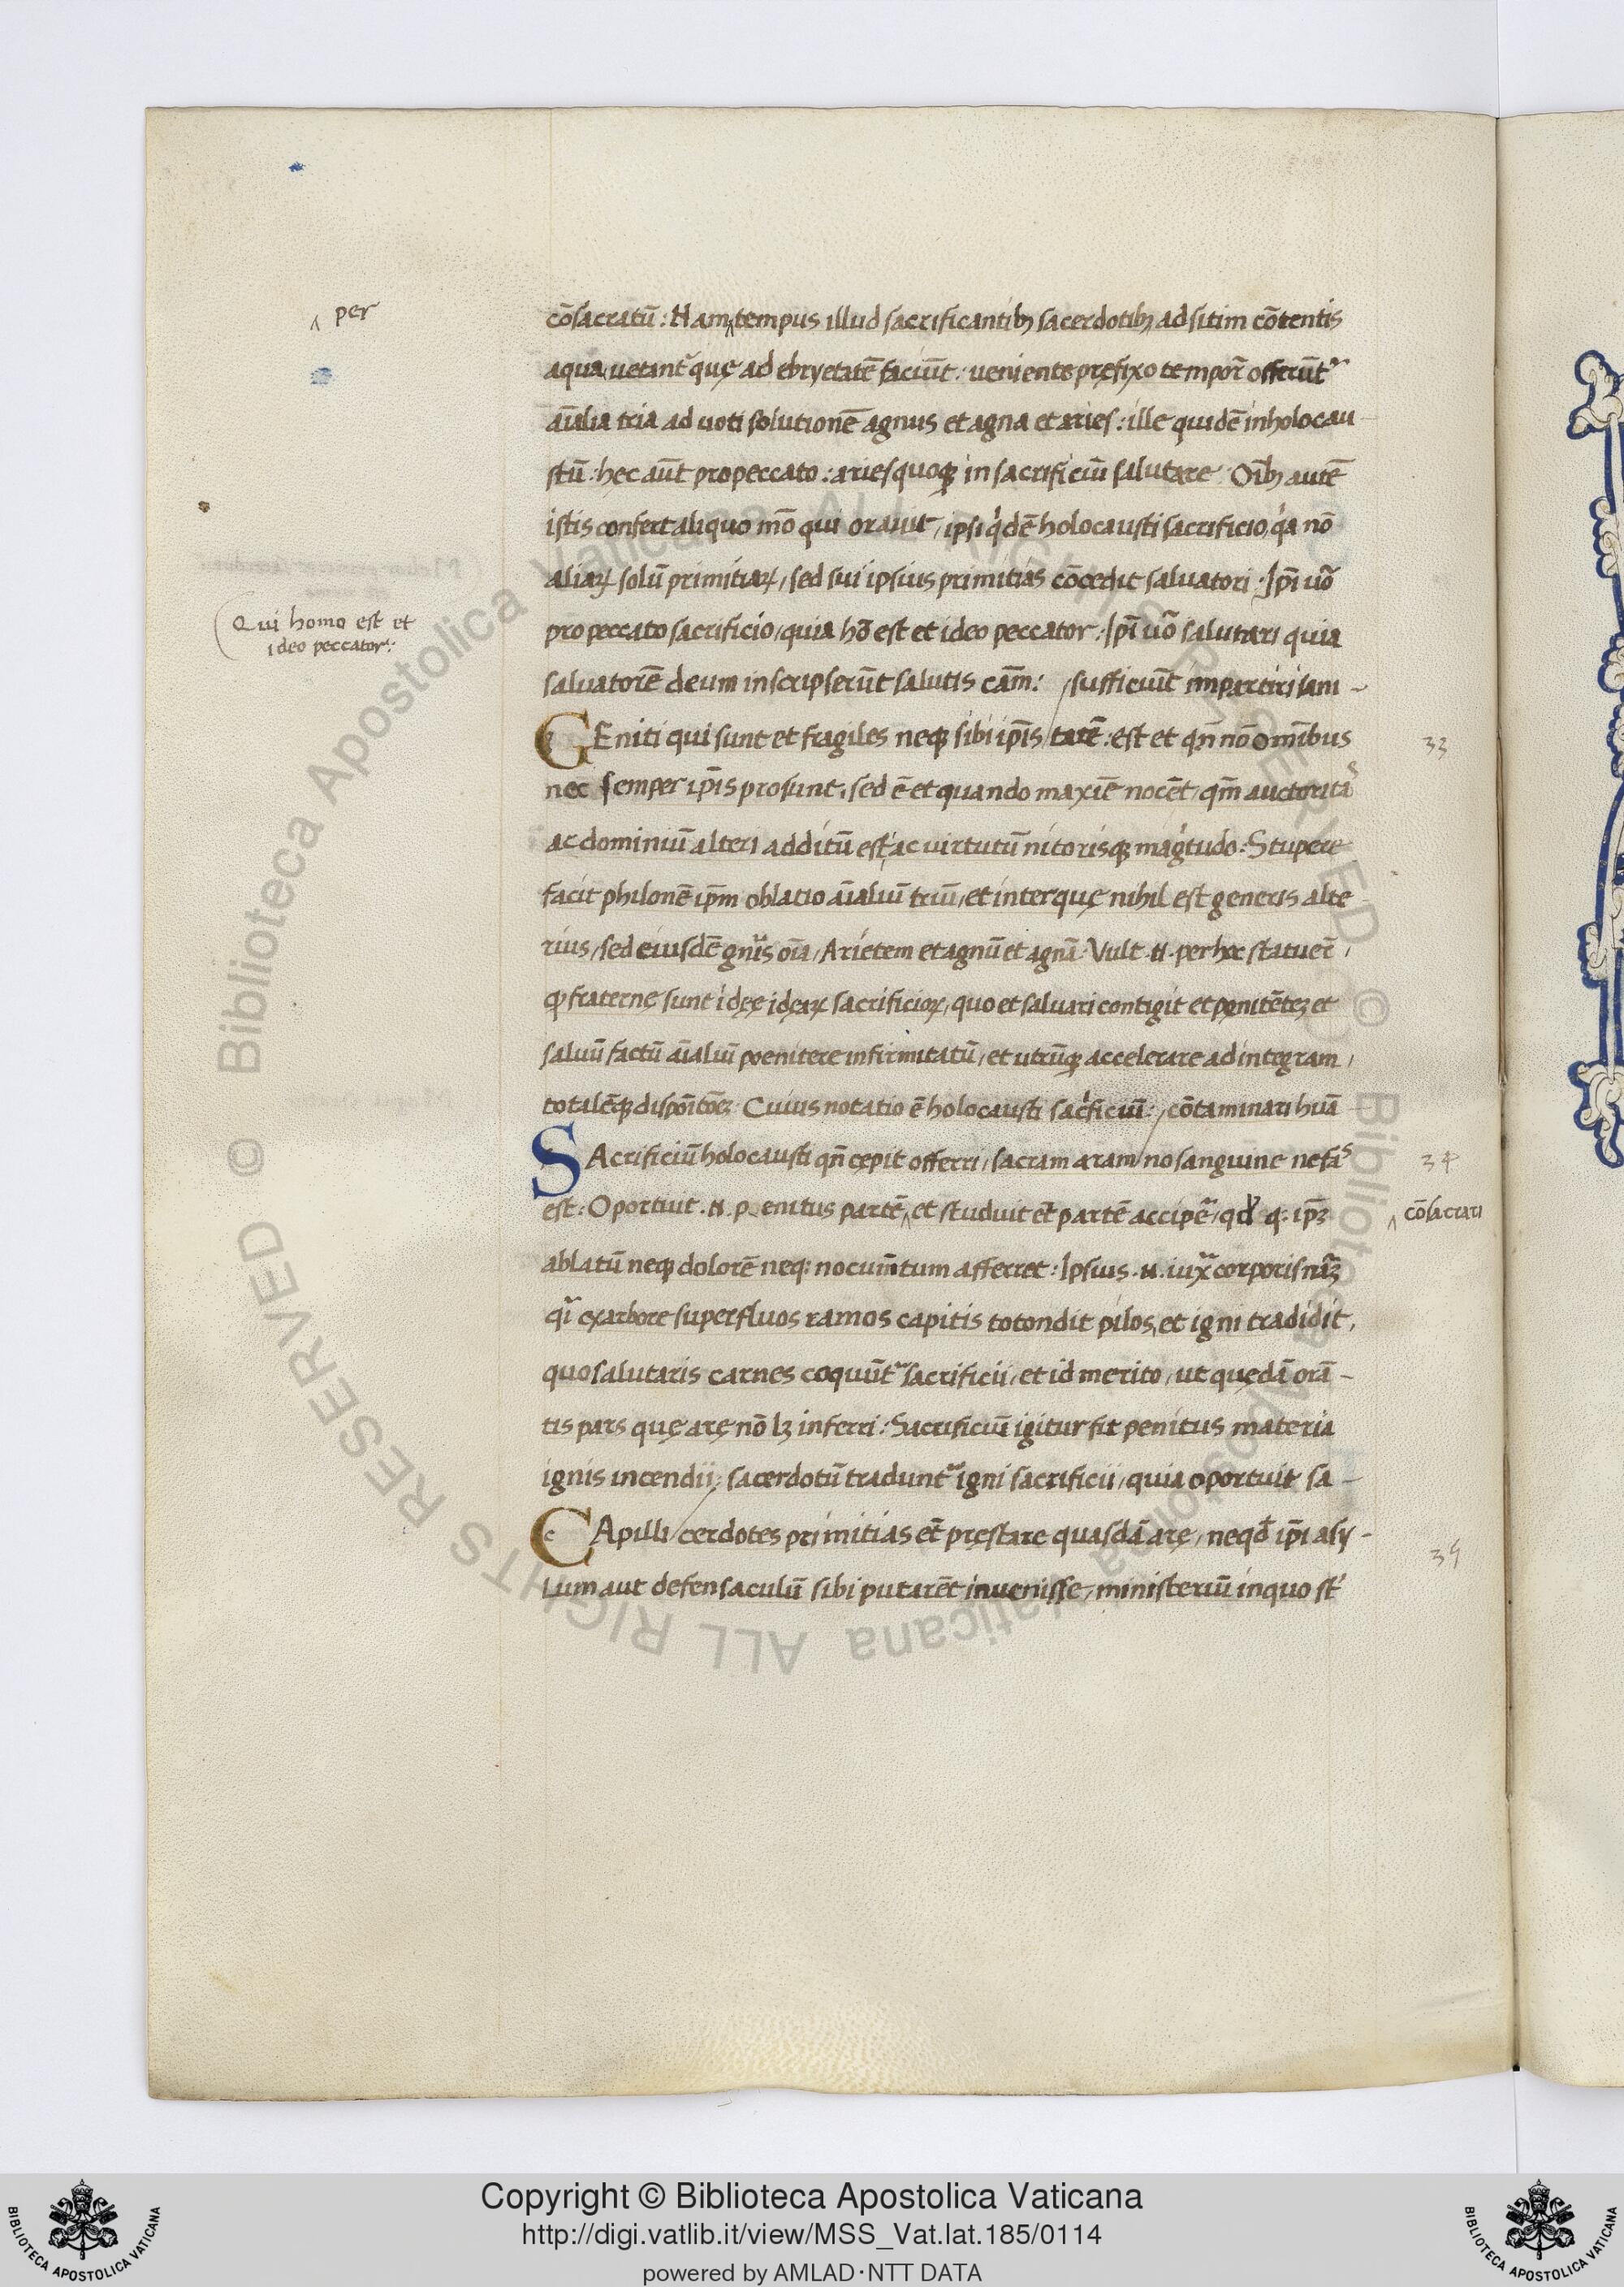 ^ per
cōsacratū: Nam^tempus illud sacrificantibꝫ sacerdotibꝫ ad sitim cōtentis
aqua, uetant᷑ quę ad ebryetatē faciūt: ueniente pręfixo tempor̄ offerūt᷑
aīalia tria ad uoti solutionē agnus et agna et aries: ille quidē in holocau-
stū: hęc aūt pro peccato: aries quoqꝫ in sacrificiū salutare. Oībꝫ autē
istis confert aliquo mō qui orauit, ipsi qͥdē holocausti sacrificio, qͥa nō
aliaꝝ solū primitiaꝝ, sed sui ipsius primitias cōcedit saluatori: Ip̄i uo᷑
Qui homo est et
ideo peccator:
pro peccato sacrificio, quia hō est et ideo peccator: Ip̄i uo᷑ salutari quia
saluatorē deum inscripserūt salutis cām: / sufficiūt impartiri sani-
GEniti qui sunt et fragiles neqꝫ sibi ip̄is / tatē: est et qn̄ nō omībus
33
nec semper ip̄is prosunt, sed ē et quando maxīe nocēt, qm̄ auctoritaˢ
ac dominiū alteri additū est, ac virtutū nitorisqꝫ magͥtudo: Stupere
facit philonē ip̄m oblatio aīaliū triū, et inter quę nihil est generis alte
rius, sed eiusdē gn̄is oīa, Arietem et agnū et agnā. Vult .n. per hec statuer̄,
ꝙ fraternę sunt idęę idęaꝝ sacrificioꝝ, quo et saluari contigit et pęnitētē et
saluū factū aīaliū poenitere infirmitatū, et utrūqꝫ accelerare ad integram,
totalēqꝫ dispōitōeꝫ. Cuius notatio ē holocausti sacͥficiū: / cōtaminari huā
SAcrificiū holocausti qn̄ cępit offerri, sacram aram / no sanguine nefaˢ
34
est: Oportuit .n. poenitus partē^et studuit et̄ partē accipe᷑, qd̓ q: ip̄ꝫ
^ cōsacrari
ablatū neqꝫ dolorē neq: nocum̄tum afferret: Ipsius .n. iux᷑ corporis nr̄ꝫ
qͣi ex arbore superfluos ramos capitis totondit pilos, et igni tradidit,
quo salutaris carnes coquūt᷑ sacrificii, et id merito, ut quędā orā-
tis pars quę arę nō lꝫ inferri: Sacrificiū igitur fit penitus materia
ignis incendii: sacerdotū tradunt᷑ igni sacrificii, quia oportuit sa-
CApilli / cerdotes primitias et̄ pręstare quasdā arę, neqd̄ ip̄i asy-
35
lum aut defensaculū sibi putarēt inuenisse, ministeriū in quo st̄
Copyright © Biblioteca Apostolica Vaticana
http://digi.vatlib.it/view/MSS_Vat.lat.185/0114
powered by AMLAD·NTT DATA